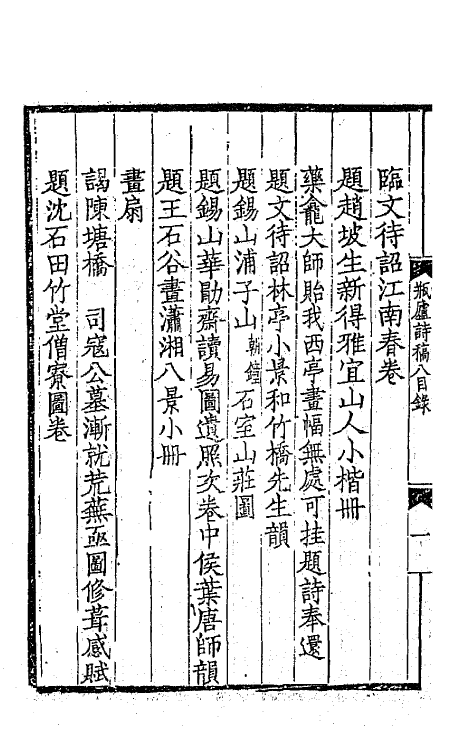 臨文待詔江南春卷
題趙坡生新得雅宜山人小楷冊
藥龕大師貽我西亭畫幅無處可挂題詩奉還
題文待詔林亭小景和竹橋先生韻
題錫山浦子山朝鐘石室山莊圖
題錫山華勛齋讀易圖遺照次卷中侯葉唐師韻
題王石谷畫瀟湘八景小冊
畫扇
謁陳塘橋　司寇公墓漸就荒蕪亟圖修葺感賦
題沈石田竹堂僧寮圖卷
瓶廬詩稿八目錄
一